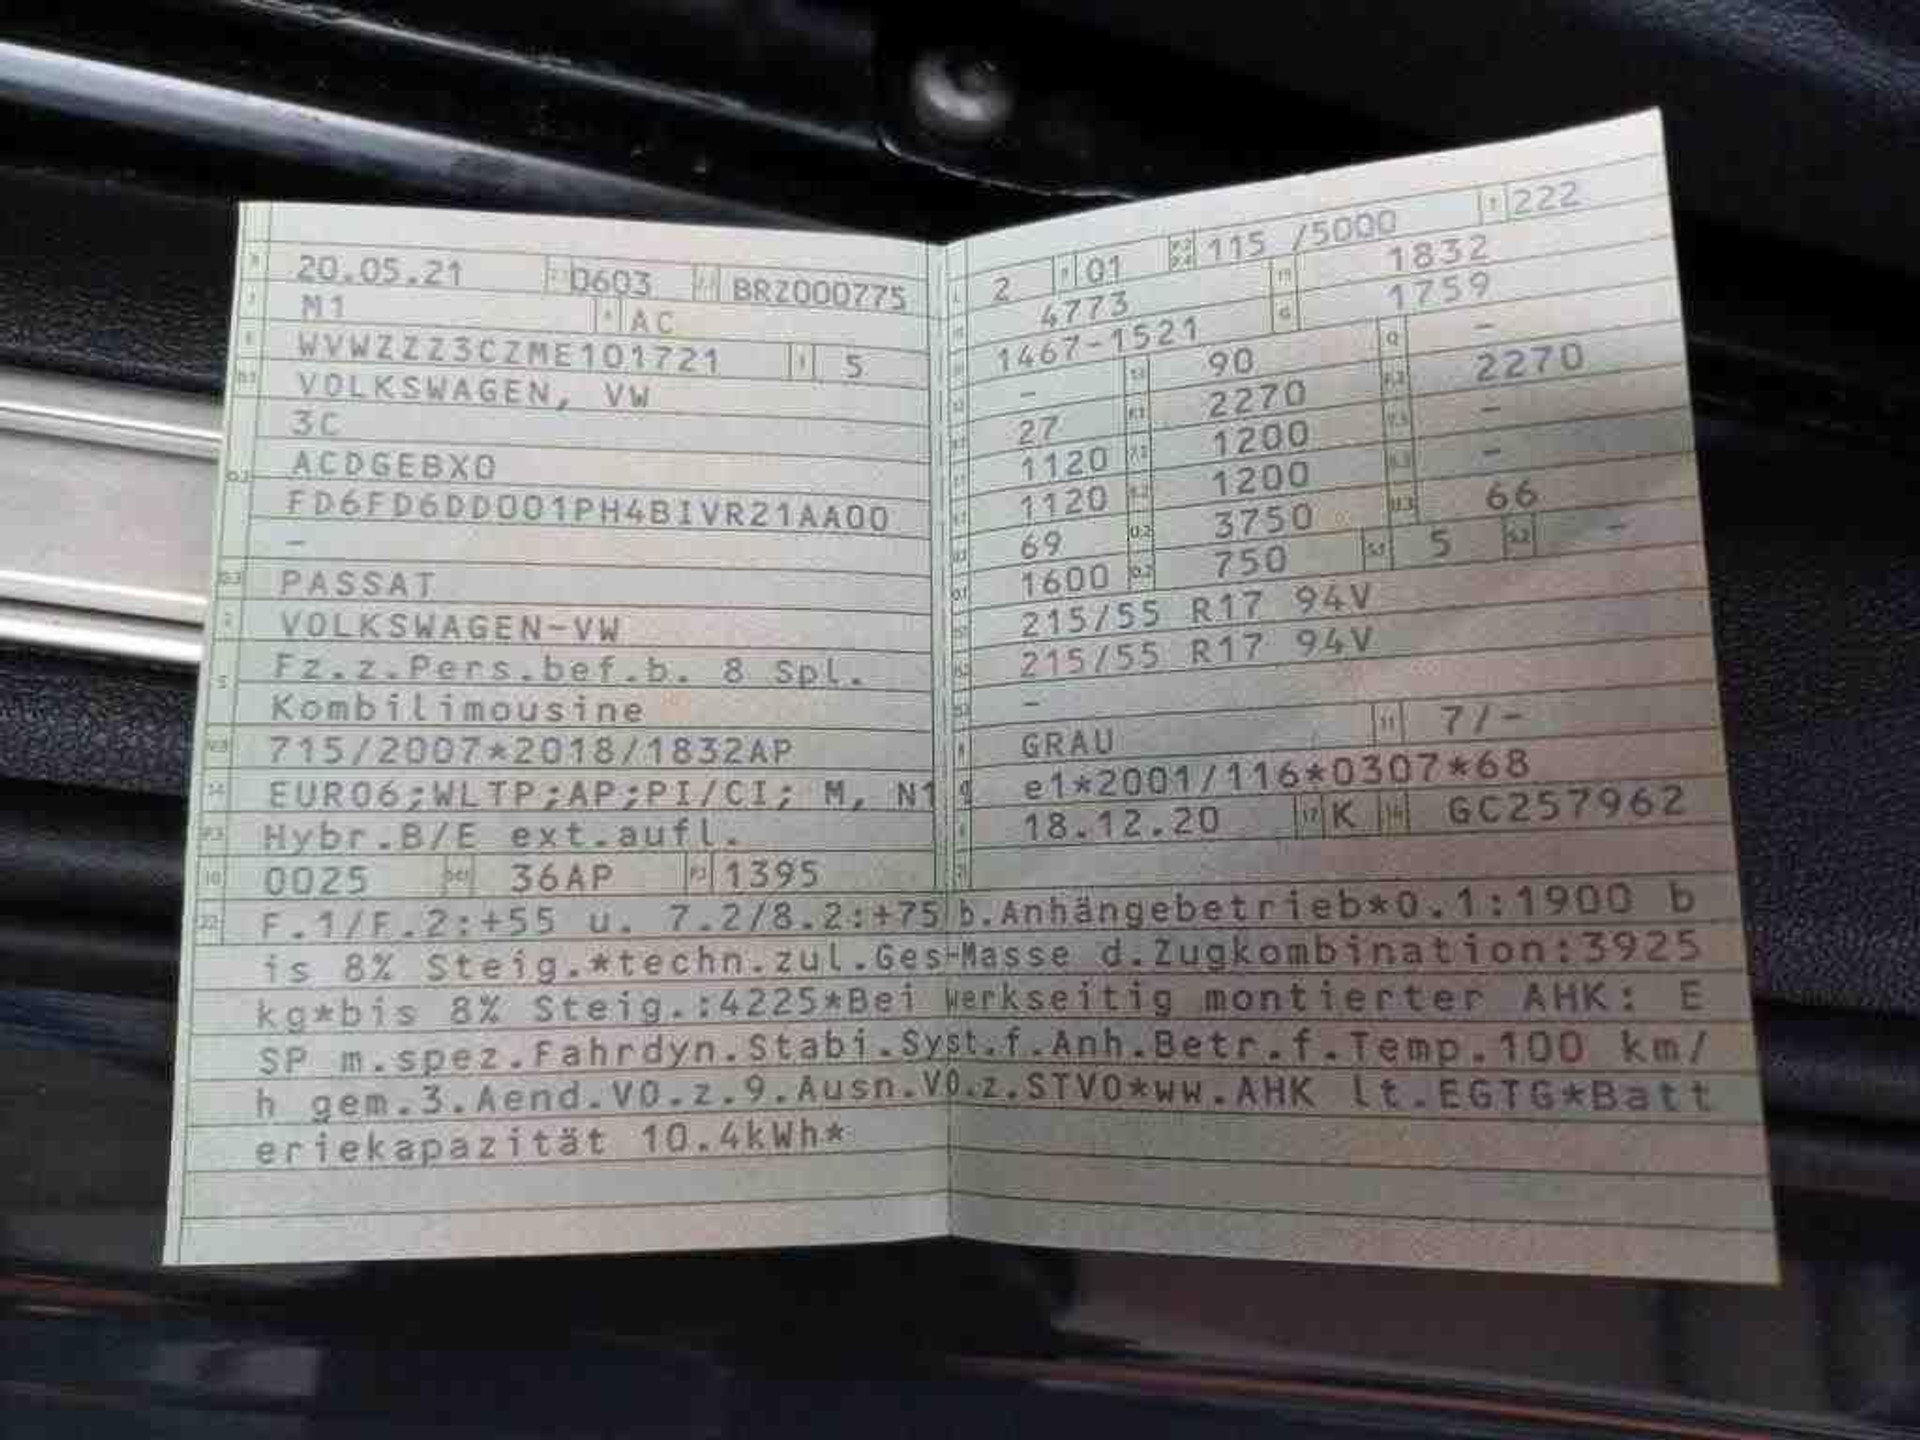 20.05.21 0603 BRZ000775
M1 AC
WVWZZZ3CZME101721 5
VOLKSWAGEN, VW
3C
ACDGEBX0
FD6FD6DD001PH4BIVR21AA00
-
PASSAT
VOLKSWAGEN-VW
Fz.z.Pers.bef.b. 8 Spl.
Kombilimousine
715/2007*2018/1832AP
EURO6;WLTP;AP;PI/CI; M, N1
Hybr.B/E ext.aufl.
0025 36AP 1395
2 01 115 /5000 222
4773 1832
1467-1521 1759
- 90 -
27 2270 2270
1120 1200 -
1120 1200 -
69 3750 66
1600 750 5 -
215/55 R17 94V
215/55 R17 94V
-
GRAU 11 7/-
e1*2001/116*0307*68
18.12.20 17 K 16 GC257962
22 F.1/F.2:+55 u. 7.2/8.2:+75 b.Anhängebetrieb*0.1:1900 b
is 8% Steig.*techn.zul.Ges-Masse d.Zugkombination:3925
kg*bis 8% Steig.:4225*Bei werkseitig montierter AHK: E
SP m.spez.Fahrdyn.Stabi.Syst.f.Anh.Betr.f.Temp.100 km/
h gem.3.Aend.VO.z.9.Ausn.VO.z.STVO*ww.AHK lt.EGTG*Batt
eriekapazität 10.4kWh*